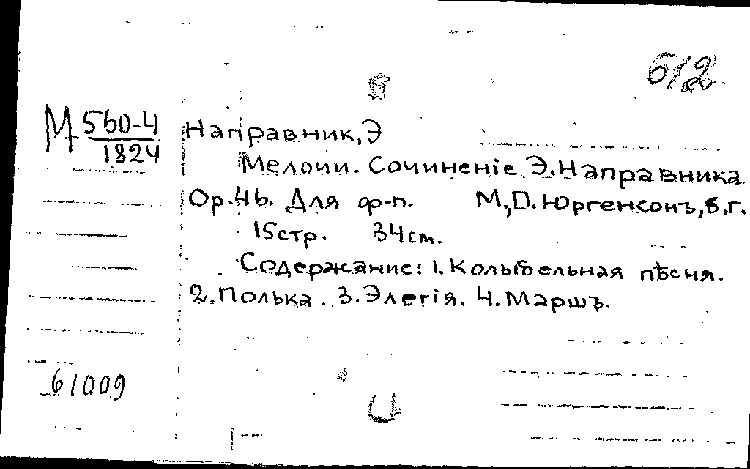 б/2
М 560-4
1824
Направник, Э
Мелочи. Сочиненіе Э. Направника
Ор. 46. Для ф-п. М, П. Юргенсонъ, б.г.
15 стр. 34 см.
Содержание: 1. Колыбельная пѣсня.
2. Полька. 3. Элегія. 4. Маршъ.
61009